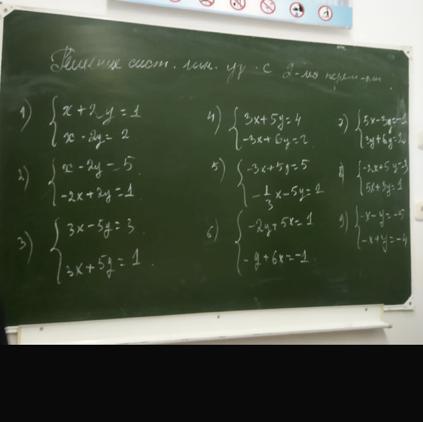 Решение сист. лин. ур. с 2-мя перем-ми.
1) x + 2y = 1
x - 2y = 2
2) x - 2y = 5
-2x + 2y = 1
3) 3x - 5y = 3
3x + 5y = 1
4) 3x + 5y = 4
-3x + 6y = 2
5) -3x + 5y = 5
-1/3 x - 5y = 2
6) -2y + 5x = 1
-y + 6x = -1
7) 5x - 3y = -1
3y + 6y = 2
8) -2x + 5y = 3
5x + 3y = 1
9) -x - y = -5
-x + y = -4